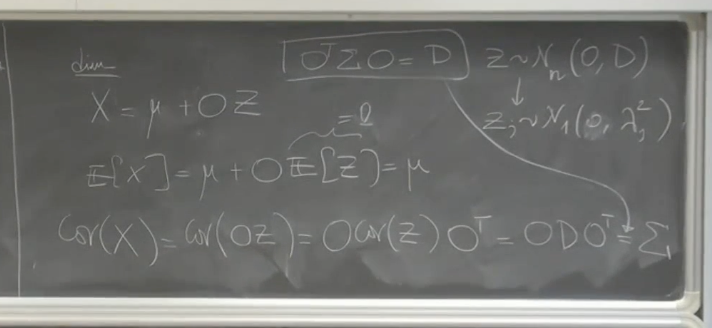 dim
O^TΣO = D Z ~ N_n(0, D)
X = μ + OZ
Z_j ~ N_1(0, λ_j^2)
= 0
E[X] = μ + O E[Z] = μ
Cov(X) = Cov(OZ) = O Cov(Z) O^T = ODO^T = Σ